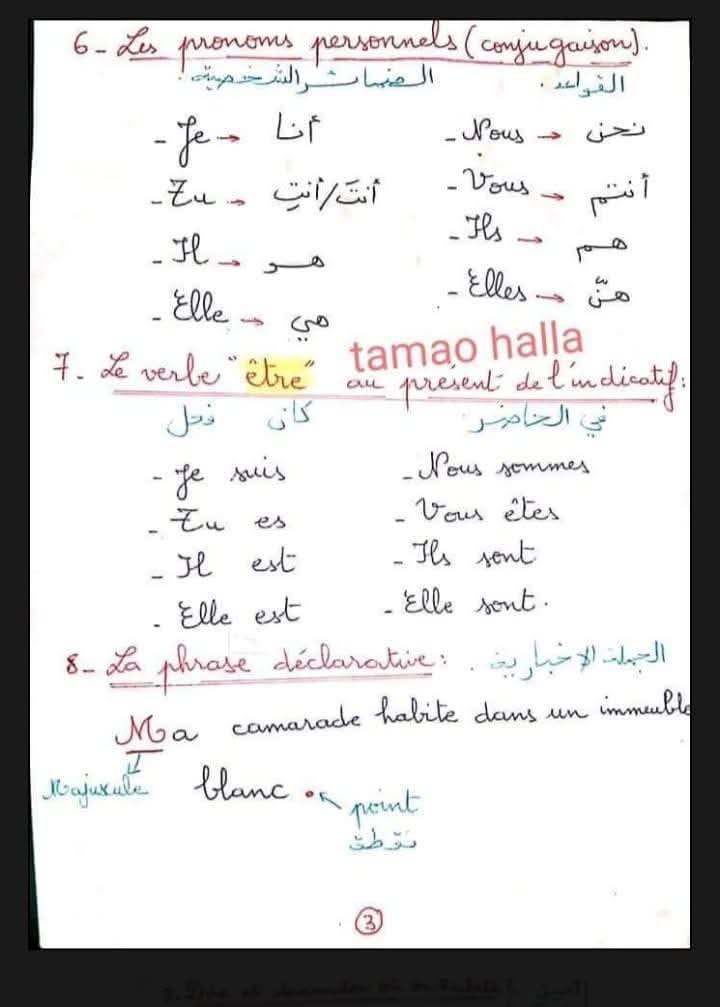 6- Les pronoms personnels (conjugaison).
القواعد. الضمائر الشخصية:
- Je → أنا
- Nous → نحن
- Tu → أنتَ/أنتِ
- Vous → أنتم
- Il → هو
- Ils → هم
- Elle → هي
- Elles → هنّ
tamao halla
7- Le verbe "être" au présent de l'indicatif:
فعل كان في الحاضر
- Je suis
- Nous sommes
- Tu es
- Vous êtes
- Il est
- Ils sont
- Elle est
- Elle sont.
8- La phrase déclarative: الجملة الإخبارية
Ma camarade habite dans un immeuble
Majuscule blanc. point
نقطة
3